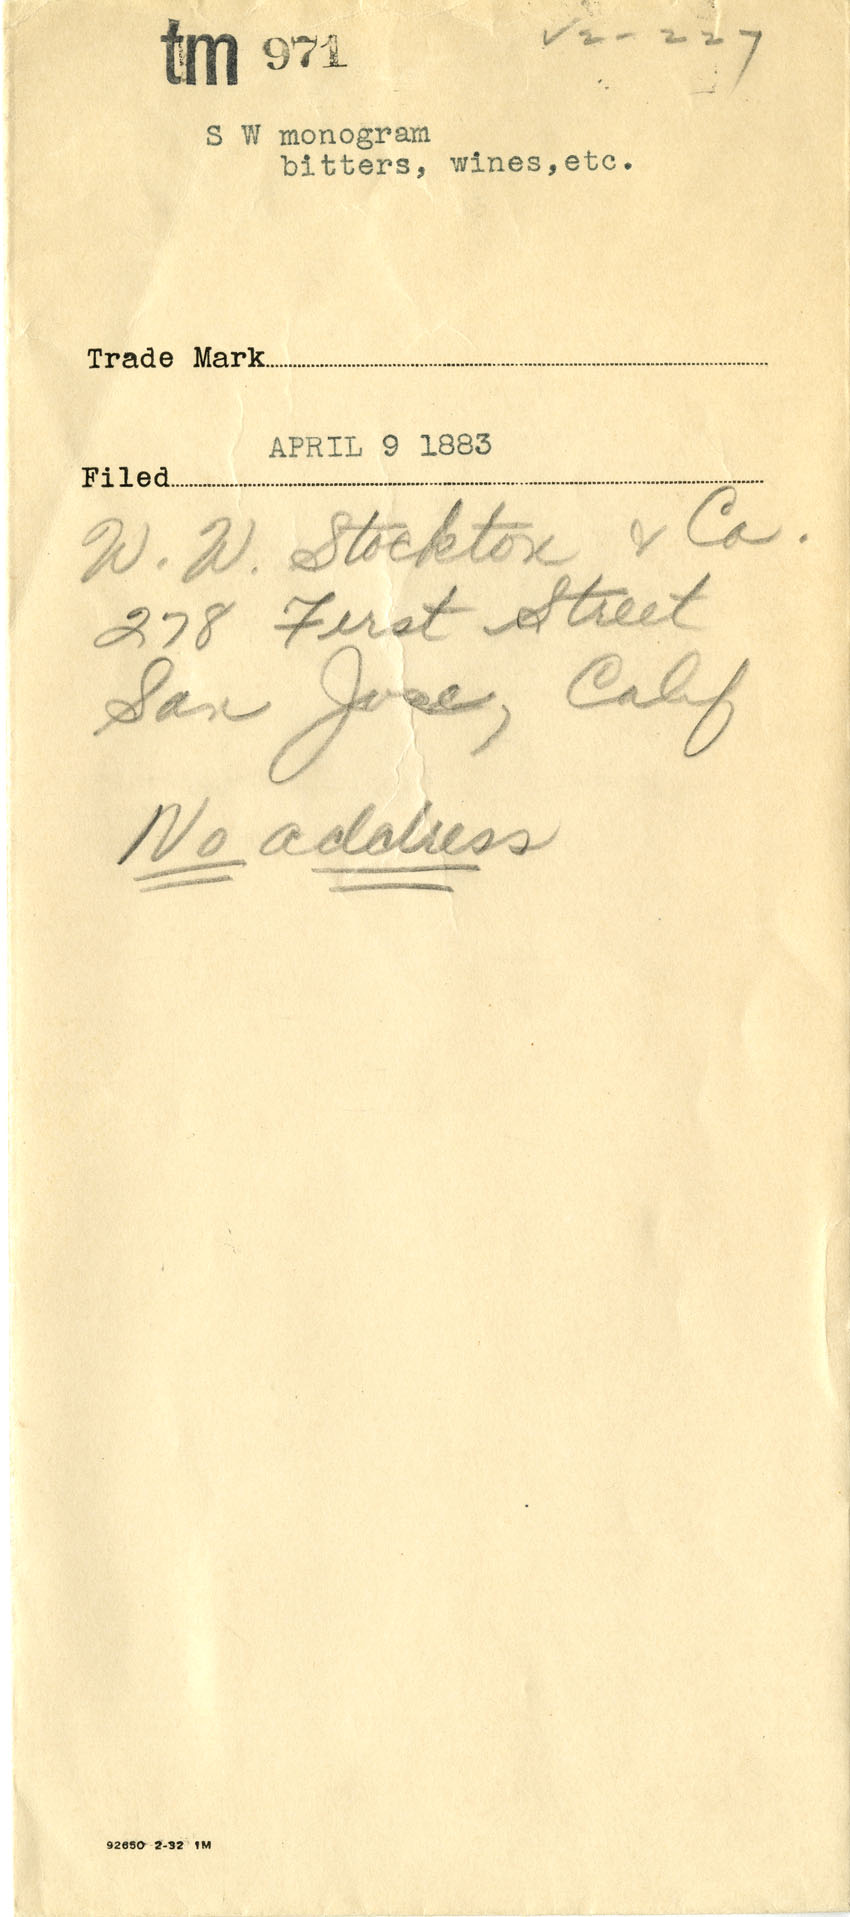 tm 971
V2-227
S W monogram
bitters, wines,etc.
Trade Mark
APRIL 9 1883
Filed
W. W. Stockton & Co.
278 First Street
San Jose, Calif
No address
92650 2-32 1M